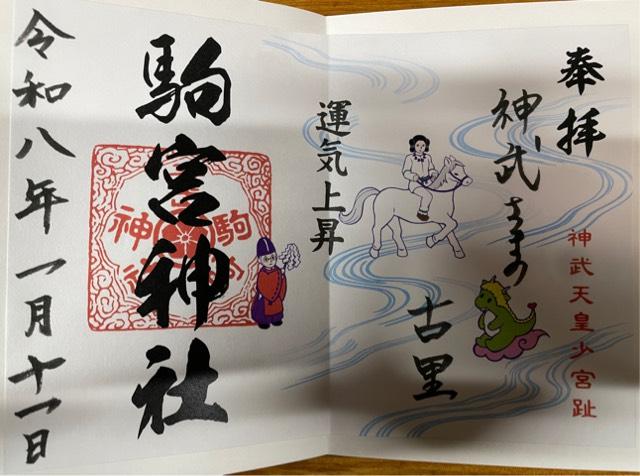 奉拝
神武天皇少宮趾
神武さまの
古里
運気上昇
駒宮神社
令和八年一月十一日